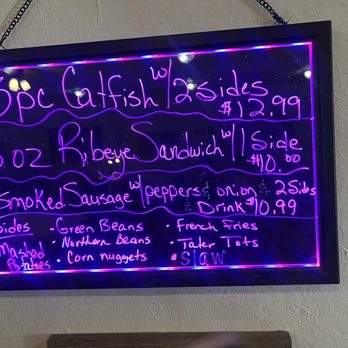 pc Catfish w/ 2 sides
$12.99
oz Ribeye Sandwich w/ 1 Side
$10.00
smoked Sausage w/ peppers & onion & 2 Sides
& Drink $10.99
Sides • Green Beans • French Fries
Mashed Potatoes • Northern Beans • Tater Tots
• Corn nuggets • Slaw